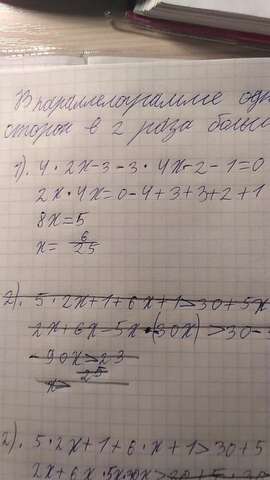 В параллелограмме одн
сторон в 2 раза больш
1). 4·2x-3-3·4x-2-1=0
2x·4x=0-4+3+3+2+1
8x=5
x= 6/25
2). 5·2x+1+6x+1>30+5x
2x+6x-5x·(30x)>30-
-90x>23
x> 25
2). 5·2x+1+6·x+1>30+5
2x+6x·5x·30x>30+5·30